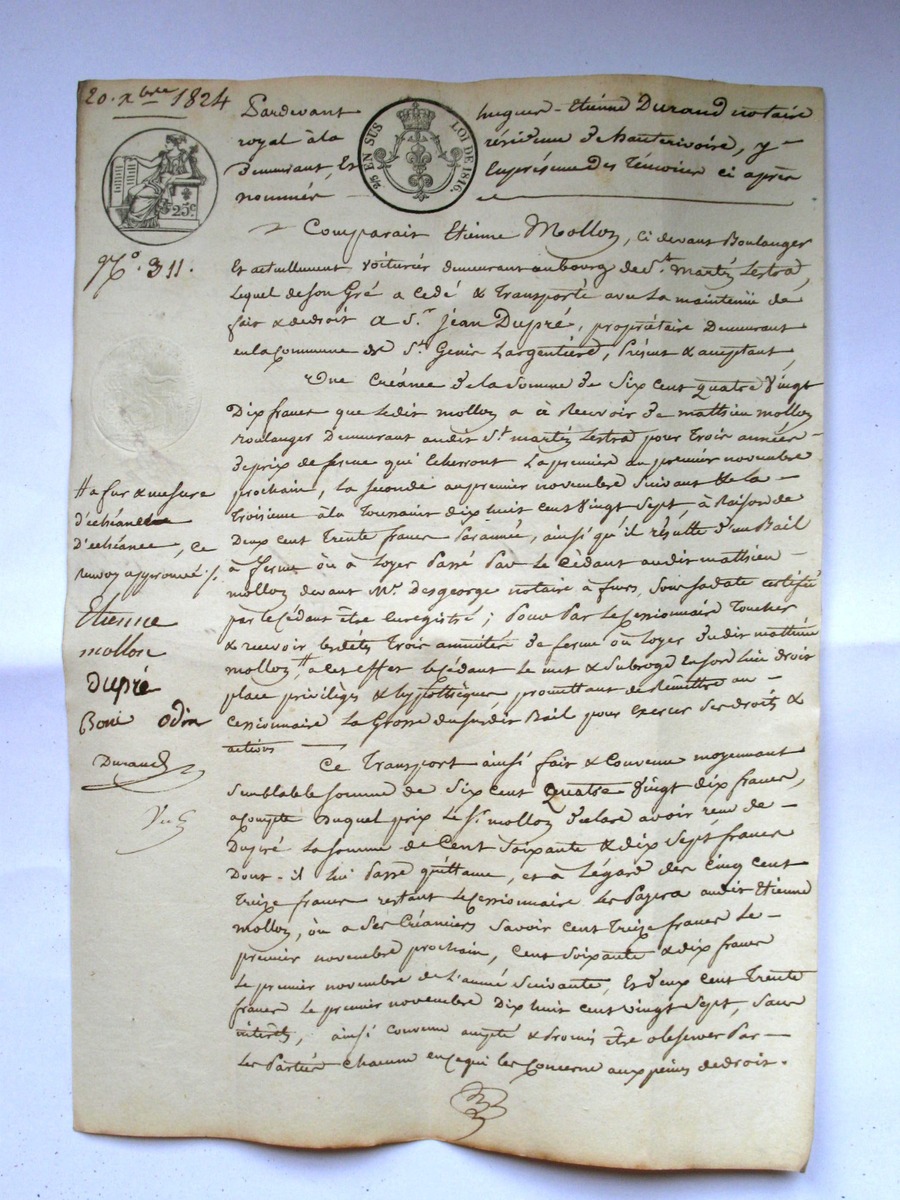 20. xbre 1824
Pardevant hugues-Etienne Durand notaire
royal à la résidence de hauterivoire, y
demeurant, Et En présence des temoins ci après
nommés
25 EN SUS LOI DE 1816.
25c
No. 311.
Comparait Etienne Mollon, ci devant Boulanger
Et actuellement voiturier demeurant au bourg de St. martin Lestra,
Lequel de son Gré a Cedé & Transporté avec La maintenüe de
fait & de droit a Sr. jean Dupré, propriétaire demeurant
en la Commune de St. Genis Largentière, présent & acceptant,
Une Créance de la Somme de Six cent quatre Vingt
Dix francs que Ledit mollon a à Recevoir de mathieu mollon
Boulanger demeurant audit St. martin Lestra pour trois années
de prix de ferme qui Echerront La première au premier novembre
prochain, La seconde au premier novembre Suivant & la
Troisieme à la Toussaint dix huit cent Vingt Sept, à Raison de
Deux cent Trente francs Par année, ainsi qu'il résulte d'un Bail
à ferme où à Loyer Passé Par Le Cédant audit mathieu
mollon devant Me. Desgeorge notaire à furs, Sous sa date certifié
par le Cédant être Enregistré ; Pour Par Le Cessionnaire Toucher
& recevoir lesdites Trois annuités de ferme où Loyer dudit mathieu
mollon, # a cet effet le cédant Le met & Subroge en son Lieu droit
place privilèges & hypothèques promettant de Remettre au
Cessionnaire La Grosse du susdit Bail pour exercer Ses droits &
actions
# a fur & mesure
d'echéance
d'echéance, ce
renvoi approuvé ./.
Etienne
mollon
Dupré
Boni odin
Durand
Ce Transport ainsi fait & Convenu moyennant
Semblable somme de Six cent Quatre Vingt dix francs,
a compte duquel prix Le Sr. mollon déclare avoir reçu de
Dupré La somme de Cent Soixante & dix Sept francs
Dont il lui Passe quittance, et à L'égard des cinq cent
treize francs restant Le Cessionnaire Les Payera audit Etienne
mollon, où a Ses Créanciers Savoir cent Treize francs Le
premier novembre prochain, Cent Soixante & dix francs
Le premier novembre de L'année Suivante, Et deux cent Trente
francs Le premier novembre Dix huit cent vingt Sept, Sans
intérêts, ainsi convenu accepté & Promis être observer Par
Les Parties Chacune en ce qui les Concerne aux peines de droit.